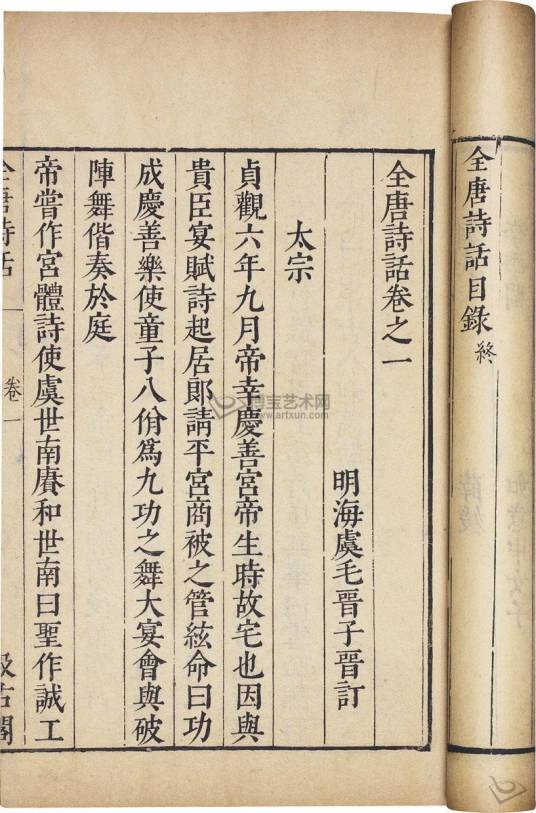 全唐詩話目錄終
全唐詩話卷之一
明海虞毛晉子晉訂
太宗
貞觀六年九月帝幸慶善宮帝生時故宅也因與
貴臣宴賦詩起居郎請平宮商被之管絃命曰功
成慶善樂使童子八佾爲九功之舞大宴會與破
陣舞偕奏於庭
帝嘗作宮體詩使虞世南賡和世南曰聖作誠工
全唐詩話 卷一 汲古閣
博宝艺术网
www.artxun.com